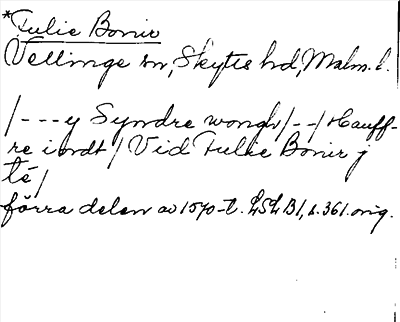 *Fulie Bonir
Vellinge sn, Skytts hd, Malm. l.
/---y Syndre wongh/--/Hauff-
re iordt/Vid Fulie Bonir j
té/
förra delen av 1570-t. LSLB1, s.361.orig.